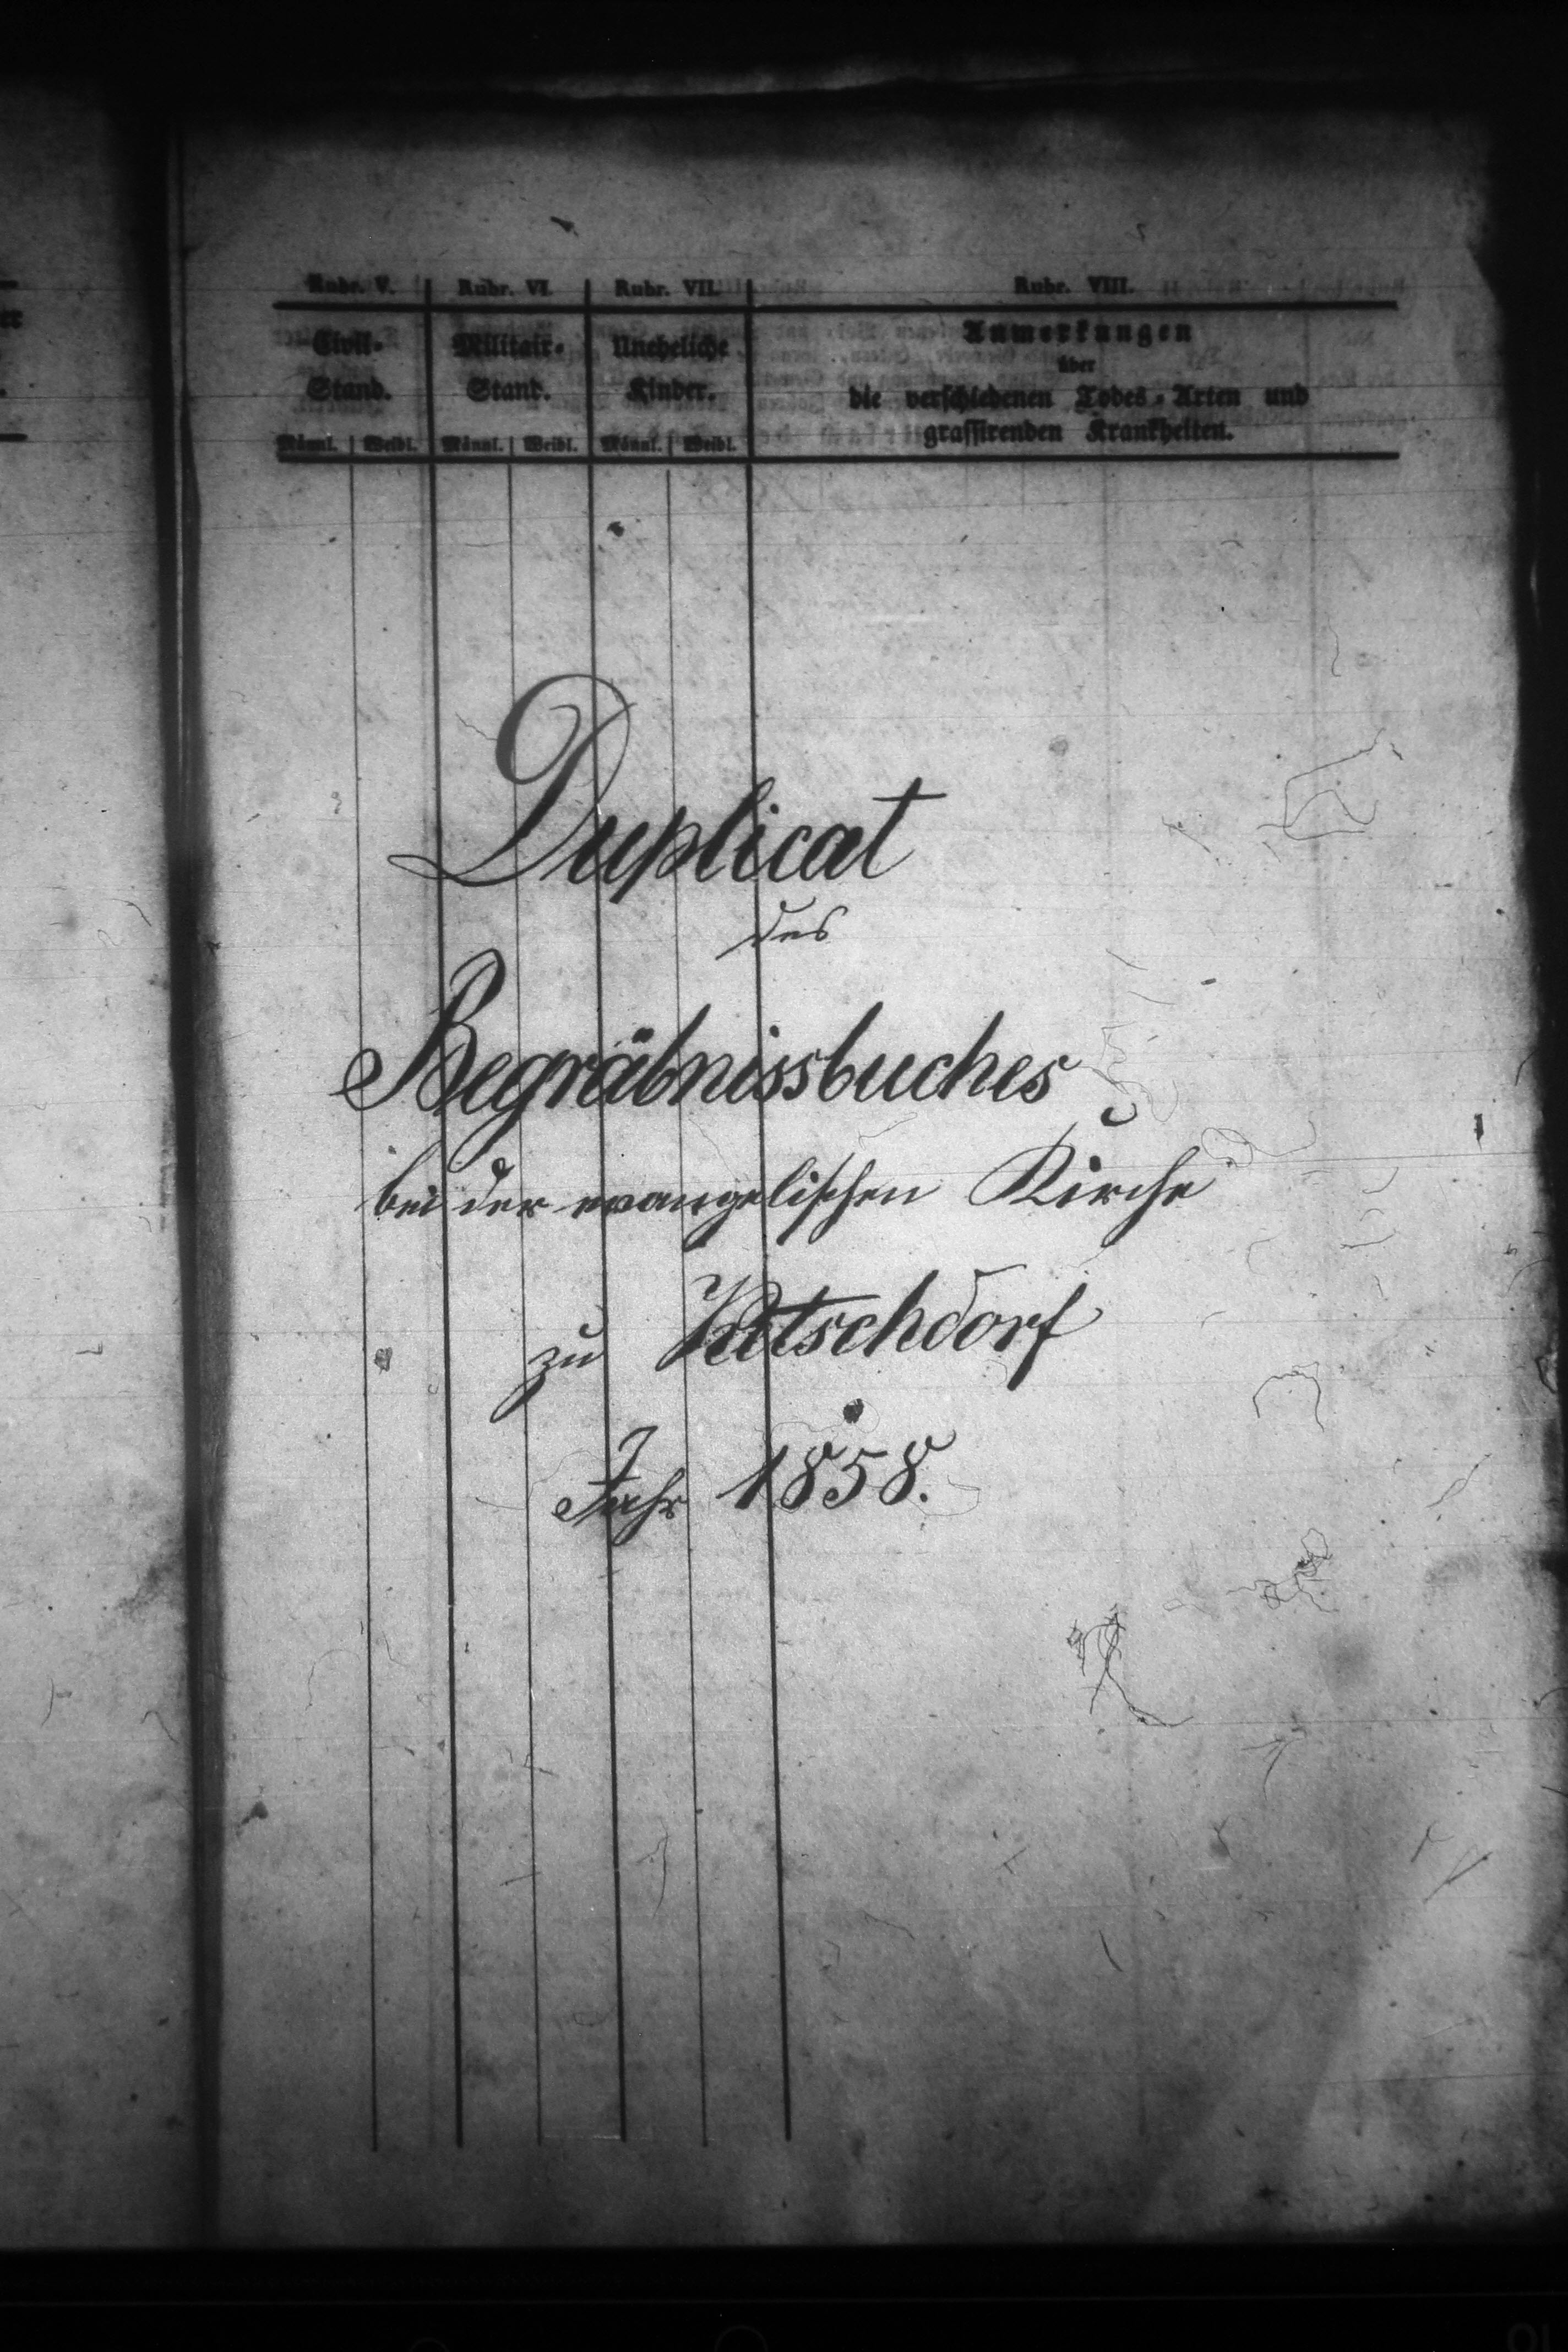 Rubr. V. Rubr. VI. Rubr. VII. Rubr. VIII.
Civil- Militair- Uneheliche Anmerkungen
über
Stand. Stand. Kinder. die verschiedenen Todes-Arten und
grassirenden Krankheiten.
Männl. Weibl. Männl. Weibl. Männl. Weibl.
Duplicat
des
Begräbnissbuches
bei der evangelischen Kirche
zu Ketschdorf
Jahr 1858.